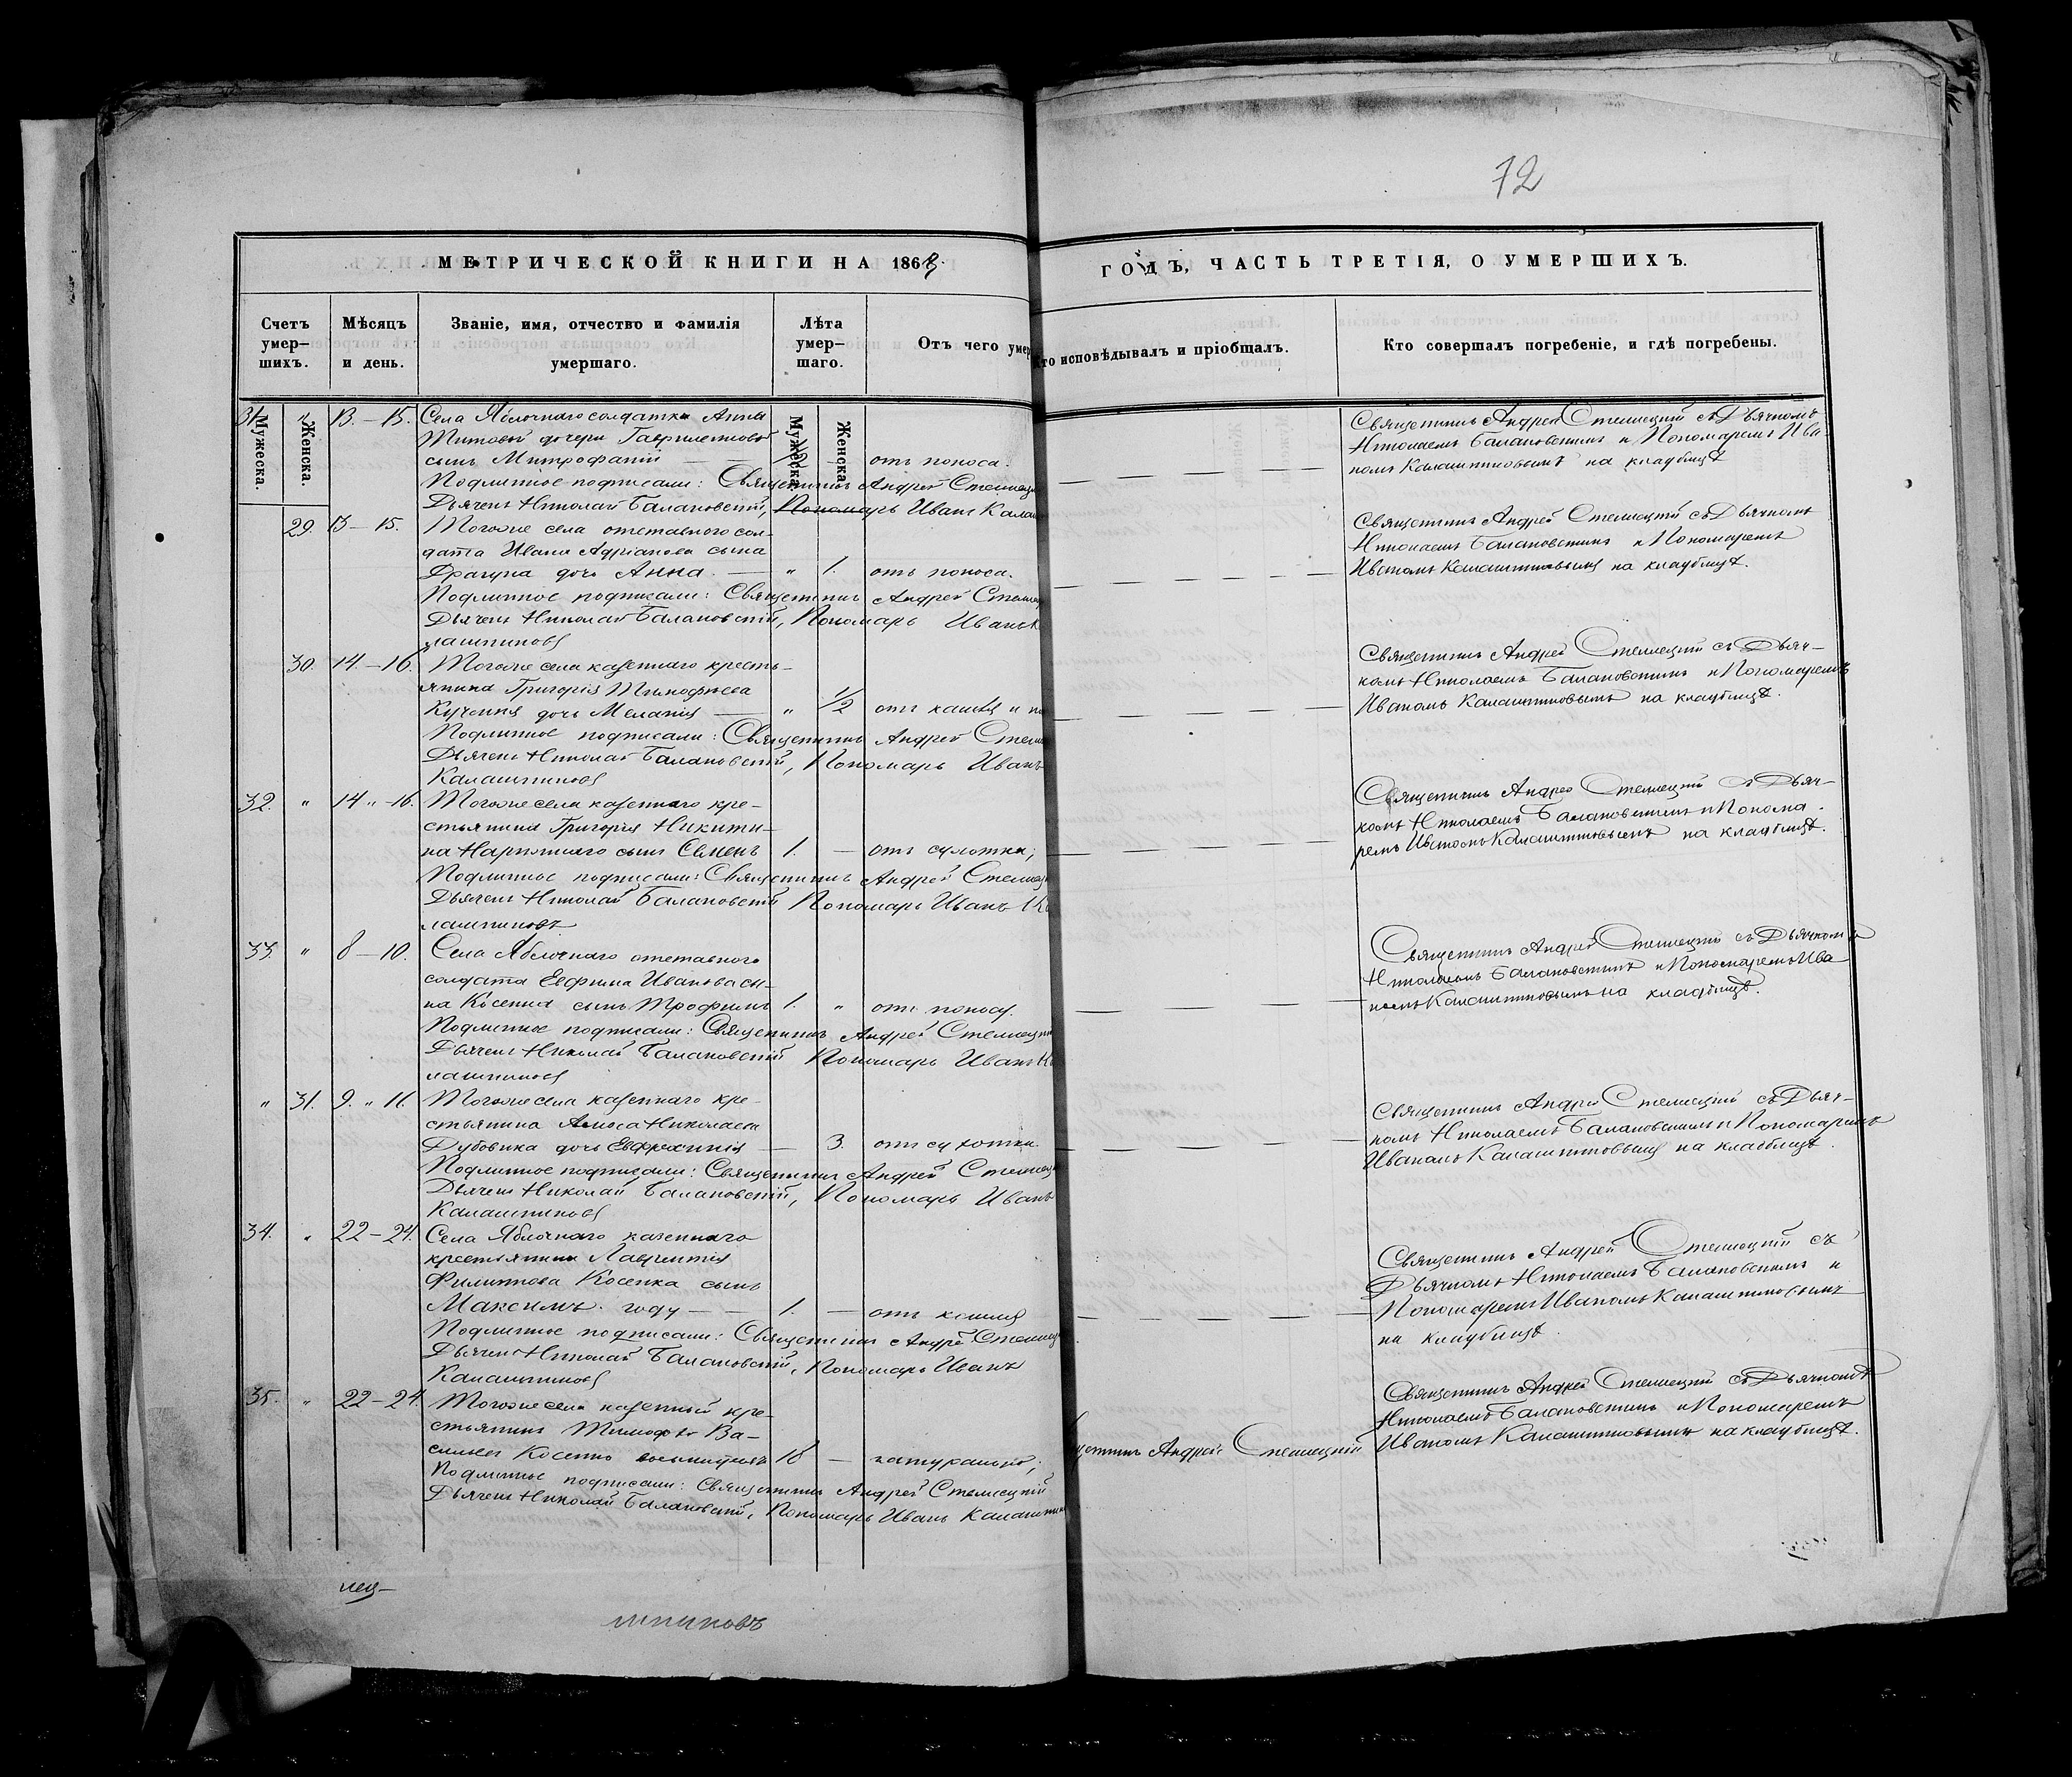 72
МЕТРИЧЕСКОЙ КНИГИ НА 1868
ГОДЪ, ЧАСТЬ ТРЕТІЯ, О УМЕРШИХЪ.
Счетъ умер–шихъ.
Мѣсяцъ и день.
Званіе, имя, отчество и фамилія умершаго.
Лѣта умер–шаго.
Отъ чего умер
Кто исповѣдывалъ и пріобщалъ.
Кто совершалъ погребеніе, и гдѣ погребены.
Мужеска.
Женска.
Мужеска.
Женска.
31. " 13. – 15. Села Яблочнаго солдатки Анны
Титовой дочери
сынъ Митрофаній — — отъ поноса.
Подлинное подписали: Священникъ Андрей
Дьячекъ Николай Балановскій, Пономарь Иванъ Калаш
Священникъ Андрей Стеллецкій съ Дьячкомъ
Николаемъ Балановскимъ и Пономаремъ Ива-
номъ Калашниковымъ на кладбищѣ
29. 13 – 15. Тогоже села отставного сол-
дата Ивана Адріанова сына
Драгуна дочь Анна. — " 1. отъ поноса.
Подлинное подписали: Священникъ Андрей Стеллец
Дьячекъ Николай Балановскій, Пономарь Иванъ К
лашниковъ
Священникъ Андрей Стеллецкій съ Дьячкомъ
Николаемъ Балановскимъ и Пономаремъ
Иваномъ Калашниковымъ на кладбищѣ.
30. 14 – 16. Тогоже села казеннаго кресть-
янина Григорія Тимофѣева
дочь Меланія — " 1/2 отъ кашля и по
Подлинное подписали: Священникъ Андрей Стелл
Дьячекъ Николай Балановскій, Пономарь Иванъ
Калашниковъ
Священникъ Андрей Стеллецкій съ Дьяч-
комъ Николаемъ Балановскимъ и Пономаремъ
Иваномъ Калашниковымъ на кладбищѣ.
32. " 14 " – 16. Тогоже села казеннаго кре-
стьянина Григорія Никити-
на сынъ Семенъ 1. — отъ сухотки;
Подлинное подписали: Священникъ Андрей Стеллец
Дьячекъ Николай Балановскій Пономарь Иванъ Ка
лашниковъ
Священникъ Андрей Стеллецкій съ Дьяч-
комъ Николаемъ Балановскимъ и Понома-
ремъ Иваномъ Калашниковымъ на кладбищѣ.
33. " 8 – 10. Села Яблочнаго отставного
солдата Евфима Иванова сы-
на Косенка сынъ Трофимъ 1. " отъ поноса.
Подлинное подписали: Священникъ Андрей Стеллецкій
Дьячекъ Николай Балановскій Пономарь Иванъ Ка
лашниковъ
Священникъ Андрей Стеллецкій съ Дьячкомъ
Николаемъ Балановскимъ и Пономаремъ Ива
номъ Калашниковымъ на кладбищѣ.
" 31. 9. " 11. Тогоже села казеннаго кре-
стьянина Амоса Николаева
Дубовика дочь Евфросинія — 3. отъ сухотки.
Подлинное подписали: Священникъ Андрей Стеллец
Дьячекъ Николай Балановскій, Пономарь Иванъ
Калашниковъ
Священникъ Андрей Стеллецкій съ Дьяч-
комъ Николаемъ Балановскимъ и Пономаремъ
Иваномъ Калашниковымъ на кладбищѣ.
34. " 22 – 24. Села Яблочнаго казеннаго
крестьянина Лаврентія
Филиппова Косенка сынъ
Максимъ. году — — 1. — отъ кашля
Подлинное подписали: Священникъ Андрей Стеллец
Дьячекъ Николай Балановскій, Пономарь Иванъ
Калашниковъ
Священникъ Андрей Стеллецкій съ
Дьячкомъ Николаемъ Балановскимъ и
Пономаремъ Иваномъ Калашниковымъ
на кладбищѣ.
35. " 22 – 24. Тогоже села казенный кре-
стьянинъ Тимофей Ва-
сильевъ Косенко 18 — натурально;
Подлинное подписали: Священникъ Андрей Стеллецкій
Дьячекъ Николай Балановскій, Пономарь Иванъ Калашник
щенникъ Андрей Стеллецкій
Священникъ Андрей Стеллецкій съ Дьячкомъ
Николаемъ Балановскимъ и Пономаремъ
Иваномъ Калашниковымъ на кладбищѣ.
лец–
шниковъ